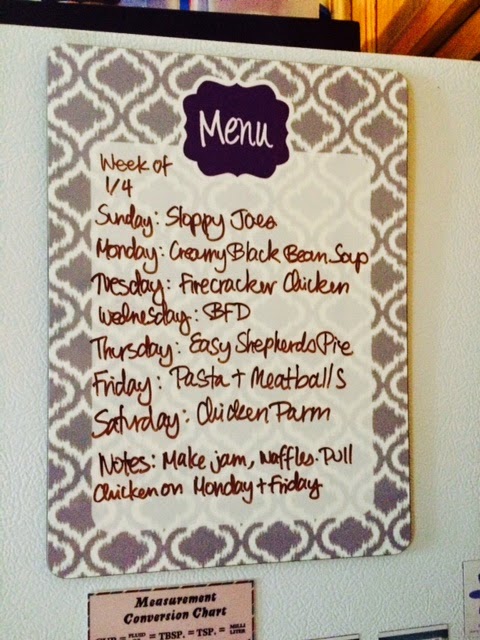 Menu
Week of
1/4
Sunday: Sloppy Joes
Monday: Creamy Black Bean Soup
Tuesday: Firecracker Chicken
Wednesday: BFD
Thursday: Easy Shepherds Pie
Friday: Pasta + Meatballs
Saturday: Chicken Parm
Notes: Make jam, Waffles. Pull
Chicken on Monday + Friday
Measurement
Conversion Chart
= TBSP. = TSP. = MILLI LITER